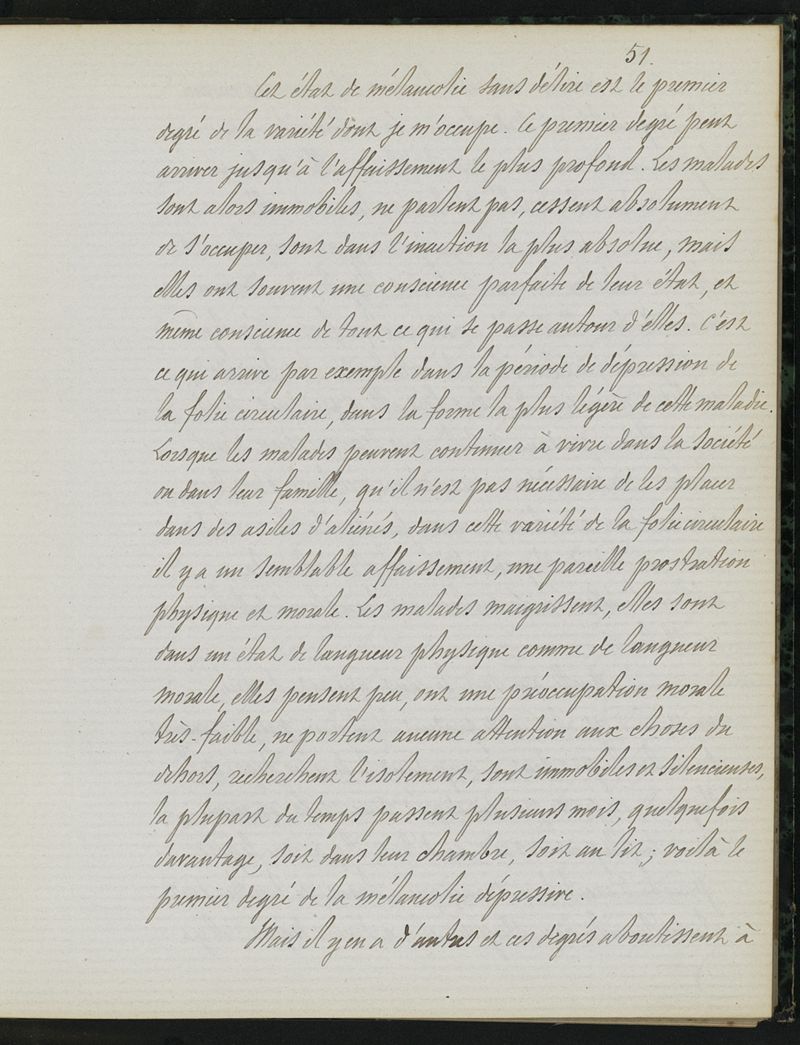 51.
Cet état de mélancolie sans délire est le premier
degré de la variété dont je m'occupe. Ce premier degré peut
arriver jusqu'à l'affaissement le plus profond. Les malades
sont alors immobiles, ne parlent pas, cessent absolument
de s'occuper, sont dans l'inaction la plus absolue, mais
elles ont souvent une conscience parfaite de leur état, et
même conscience de tout ce qui se passe autour d'elles. C'est
ce qui arrive par exemple dans la période de dépression de
la folie circulaire, dans la forme la plus légère de cette maladie.
Lorsque les malades peuvent continuer à vivre dans la société
ou dans leur famille, qu'il n'est pas nécessaire de les placer
dans des asiles d'aliénés, dans cette variété de la folie circulaire
il y a un semblable affaissement, une pareille prostration
physique et morale. Les malades maigrissent, elles sont
dans un état de langueur physique comme de langueur
morale, elles pensent peu, ont une préoccupation morale
très-faible, ne portent aucune attention aux choses du
dehors, recherchent l'isolement, sont immobiles et silencieuses,
la plupart du temps passent plusieurs mois, quelquefois
davantage, soit dans leur chambre, soit au lit; voilà le
premier degré de la mélancolie dépressive.
Mais il y en a d'autres et ces degrés aboutissent à